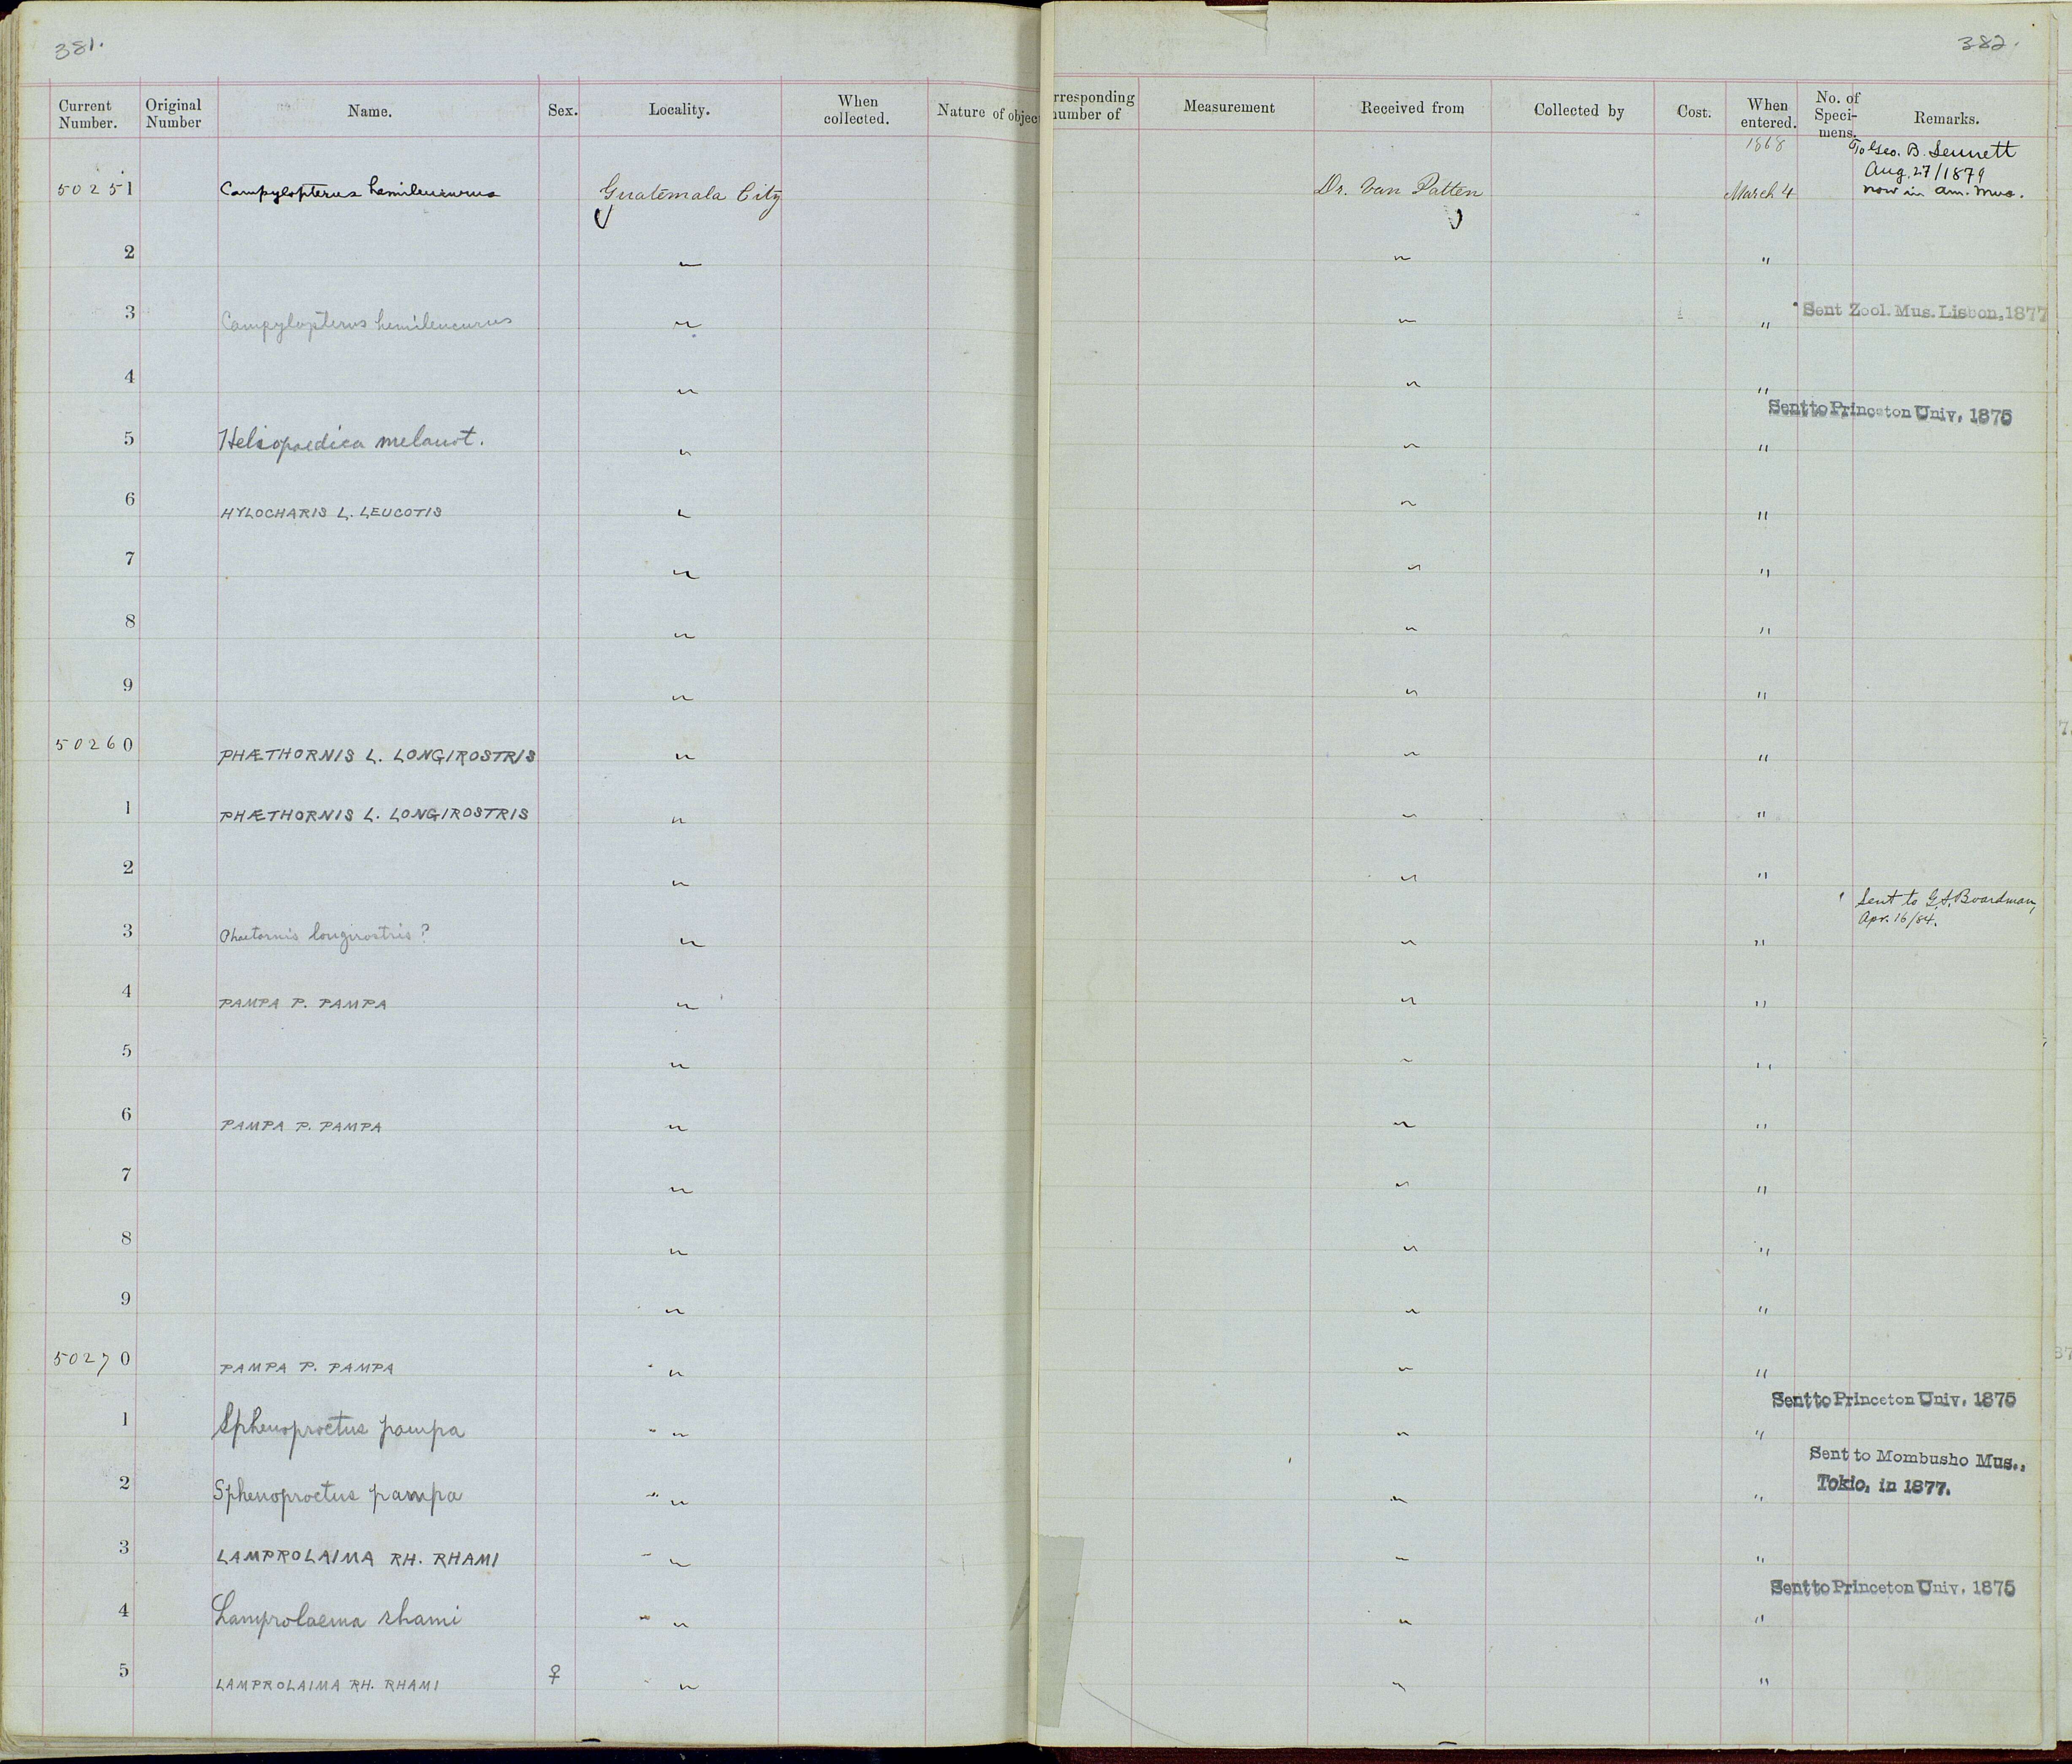 381.
382.
Current Number. Original Number Name. Sex. Locality. When collected. Nature of objec
rresponding number of Measurement Received from Collected by Cost. When entered. No. of Speci- mens. Remarks.
1868
To Geo. B. Sennett
Aug. 27/1879
now in Am. Mus.
50251 Campylopterus hemileucurus Guatemala City Dr. Van Patten March 4
2 " " "
3 Campylopterus hemileucurus " " " Sent Zool. Mus. Lisbon, 1877
4 " " "
Sent to Princeton Univ. 1875
5 Heliopaedica melanot. " " "
6 HYLOCHARIS L. LEUCOTIS " " "
7 " " "
8 " " "
9 " " "
50260 PHÆTHORNIS L. LONGIROSTRIS " " "
1 PHÆTHORNIS L. LONGIROSTRIS " " "
2 " " "
Sent to G. A. Boardman,
Apr. 16/84.
3 Phaetornis longirostris? " " "
4 PAMPA P. PAMPA " " "
5 " " "
6 PAMPA P. PAMPA " " "
7 " " "
8 " " "
9 " " "
50270 PAMPA P. PAMPA " " "
Sent to Princeton Univ. 1875
1 Sphenoproctus pampa " " "
Sent to Mombusho Mus.,
Tokio, in 1877.
2 Sphenoproctus pampa " " "
3 LAMPROLAIMA RH. RHAMI " " "
Sent to Princeton Univ. 1875
4 Lamprolaema rhami " " "
5 LAMPROLAIMA RH. RHAMI ♀ " " "